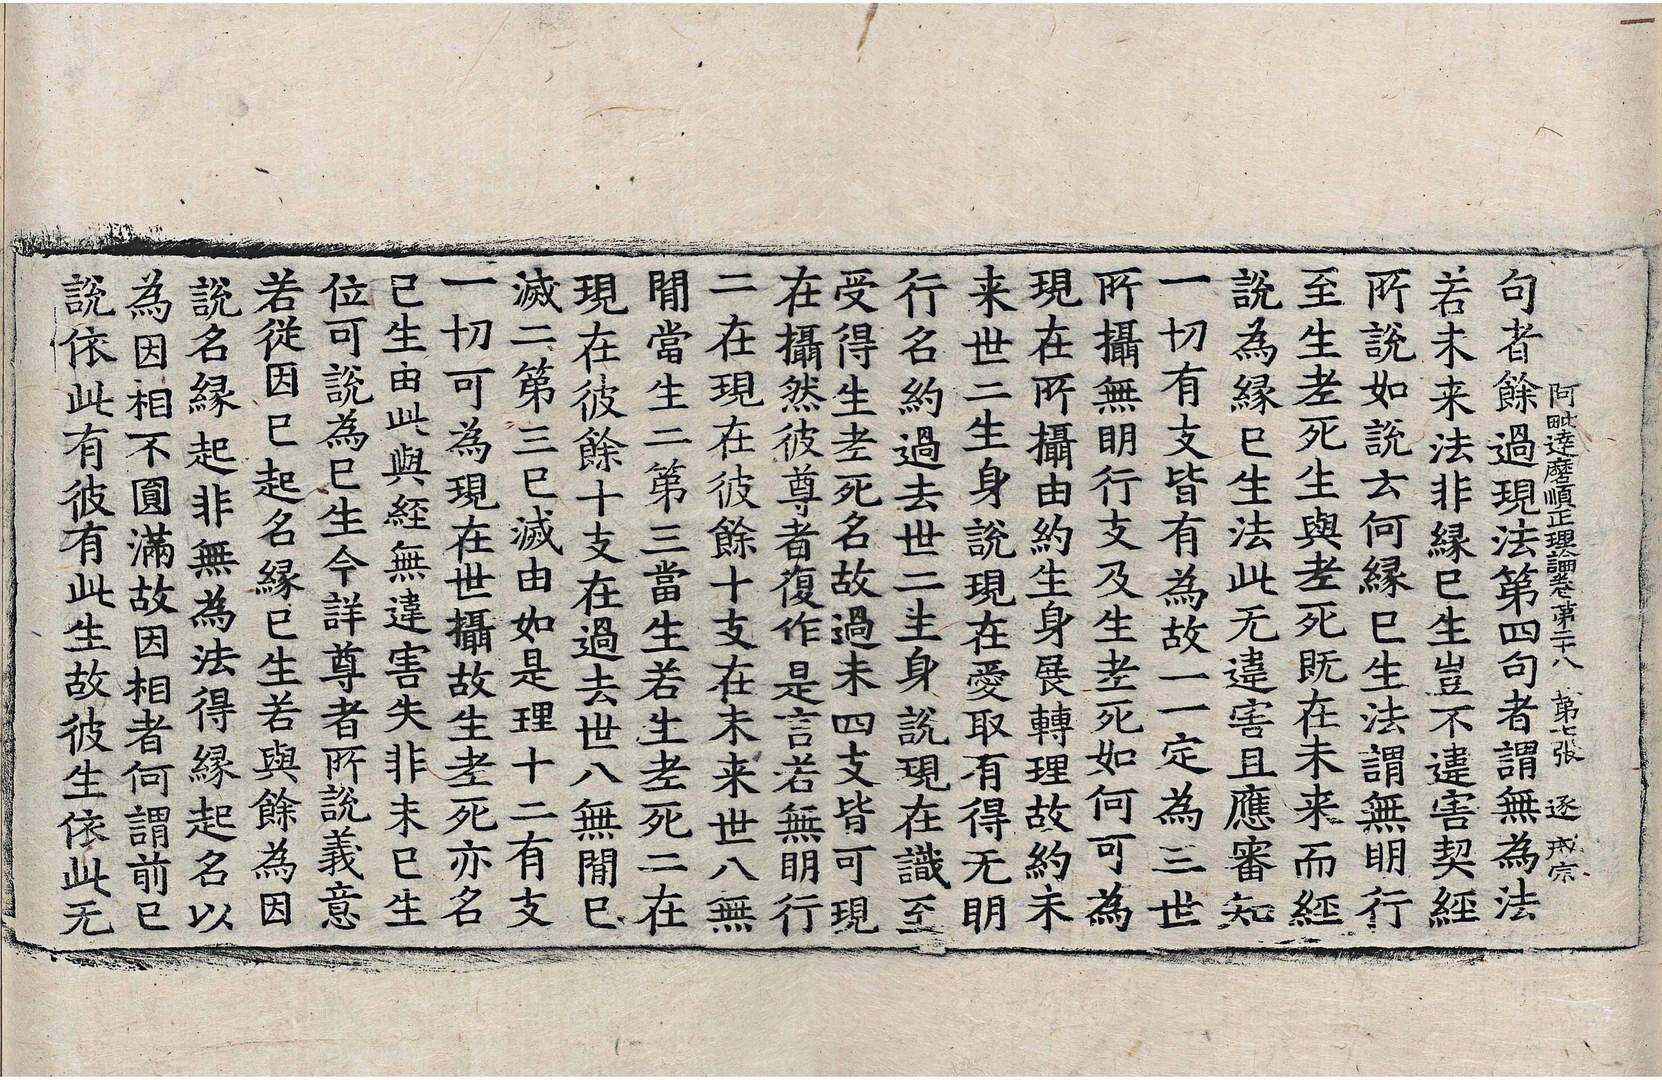 阿毗達磨順正理論卷第二十八 第七張 逐 戒宗
句者餘過現法第四句者謂無為法
若未来法非縁已生豈不違害契經
所說如說云何縁已生法謂無明行
至生老死生與老死既在未来而經
說為縁已生法此无違害且應審知
一切有支皆有為故一一定為三世
所攝無明行支及生老死如何可為
現在所攝由約生身展轉理故約未
来世二生身說現在愛取有得无明
行名約過去世二生身說現在識至
受得生老死名故過未四支皆可現
在攝然彼尊者復作是言若無明行
二在現在彼餘十支在未来世八無
間當生二第三當生若生老死二在
現在彼餘十支在過去世八無間已
滅二第三已滅由如是理十二有支
一切可為現在世攝故生老死亦名
已生由此與經無違害失非未已生
位可說為已生今詳尊者所說義意
若從因已起名縁已生若與餘為因
說名縁起非無為法得縁起名以
為因相不圓滿故因相者何謂前已
說依此有彼有此生故彼生依此无